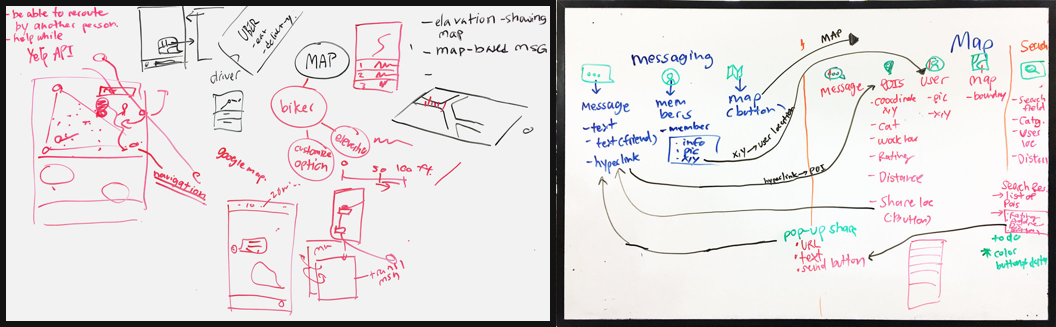 - be able to reroute
by another person.
- help while
Yelp API
navigation
UBER
- eat
- delivery
driver
MAP
biker
customize
option
elevation
google map.
0 50 100 ft.
1
2
3
- elavation - showing
map
- map-based msg
-
messaging
Message
- text
- text (friend)
- hyperlink
mem
bers
- member
- info
- pic
- x,y
map
(button)
MAP
x,y → user location
hyperlink → POI
Message
POIS
- coordinate
x,y
- Cat
- Rating
- Distance
- Share loc
(button)
User
- pic
- x,y
Map
map
- boundary
Search
- Search
field
- Catg.
- User
loc
- Distan
Search Res.
→ list of
Pois
to do
* color
pop-up share
• URL
• text
• send button